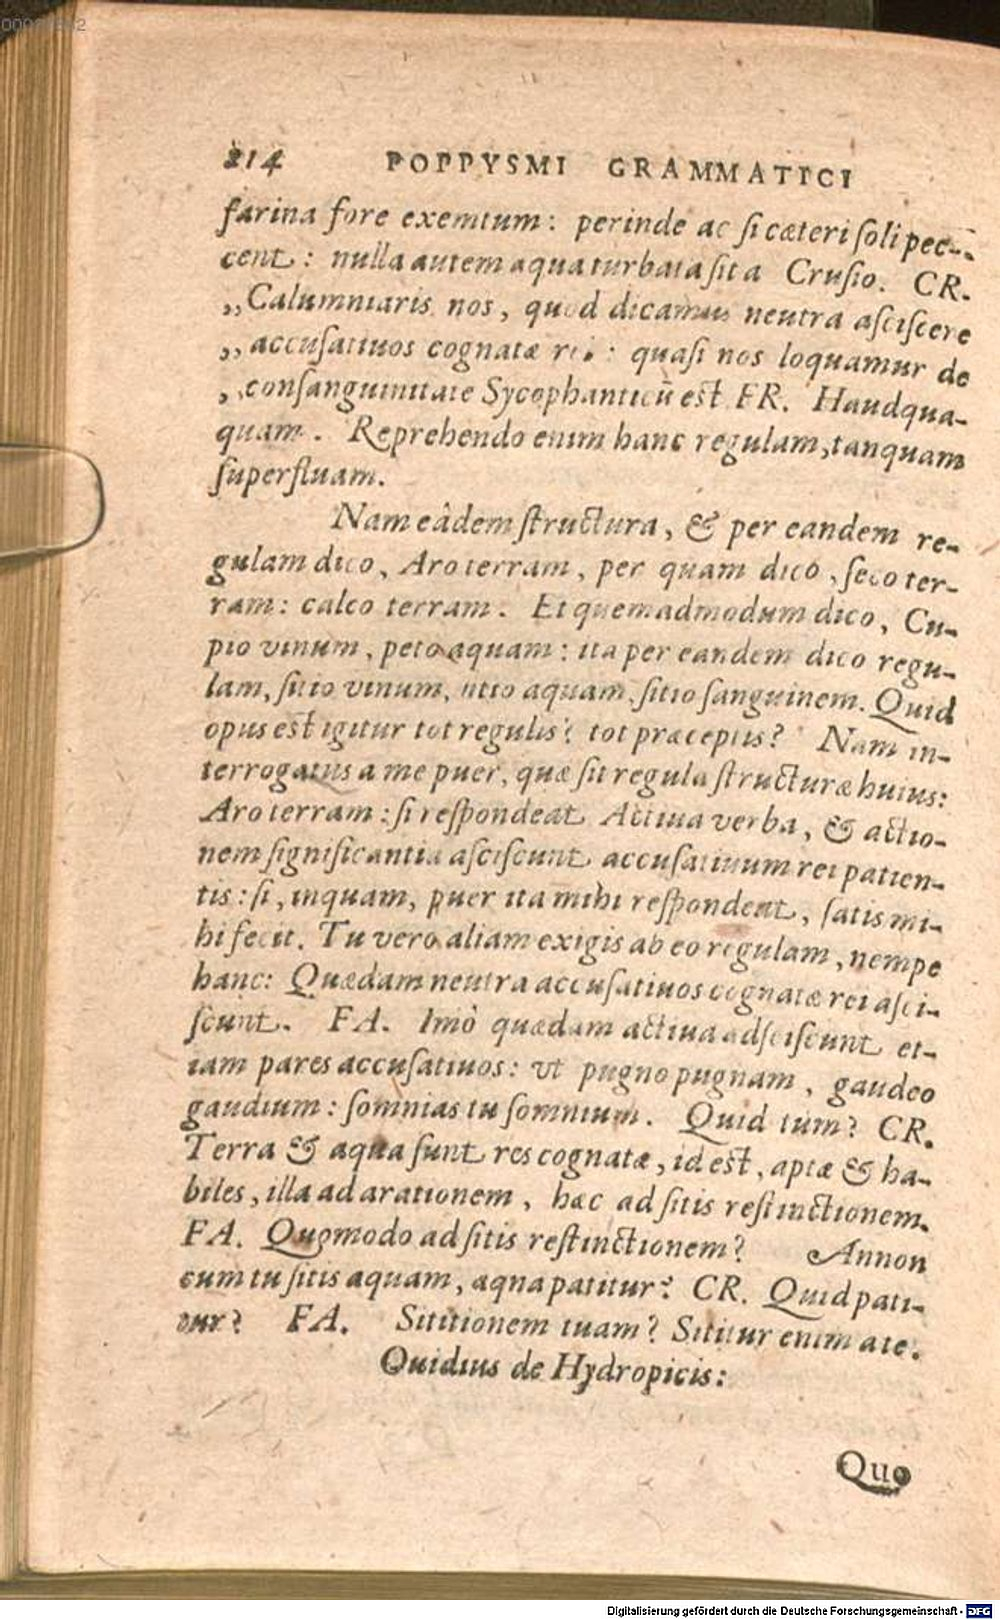 214 POPPYSMI GRAMMATICI
farina fore exemtum: perinde ac si cæteri soli pec-
cent: nulla autem aqua turbata sit a Crusio. CR.
„Calumniaris nos, quod dicamus neutra asciscere
„accusatiuos cognatæ rei: quasi nos loquamur de
„consanguinitate Sycophanticū est FR. Haudqua-
quam. Reprehendo enim hanc regulam, tanquam
superfluam.
Nam eâdem structura, & per eandem re-
gulam dico, Aro terram, per quam dico, seco ter-
ram: calco terram. Et quemadmodum dico, Cu-
pio vinum, peto aquam: ita per eandem dico regu-
lam, sitio vinum, sitio aquam, sitio sanguinem. Quid
opus est igitur tot regulis? tot præceptis? Nam in-
terrogatus a me puer, quæ sit regula structuræ huius:
Aro terram: si respondeat Actiua verba, & actio-
nem significantia asciscunt accusatiuum rei patien-
tis: si, inquam, puer ita mihi respondeat, satis mi-
hi fecit. Tu vero aliam exigis ab eo regulam, nempe
hanc: Quædam neutra accusatiuos cognatæ rei asci-
scunt. FA. Imò quædam actiua adsciscunt et-
iam pares accusatiuos: vt pugno pugnam, gaudeo
gaudium: somnias tu somnium. Quid tùm? CR.
Terra & aqua sunt res cognatæ, id est, aptæ & ha-
biles, illa ad arationem, hæc ad sitis restinctionem.
FA. Quomodo ad sitis restinctionem? Annon
cum tu sitis aquam, aqna patitur? CR. Quid pati-
tur? FA. Sititionem tuam? Sititur enim a te.
Ouidius de Hydropicis:
Quo
Digitalisierung gefördert durch die Deutsche Forschungsgemeinschaft - DFG